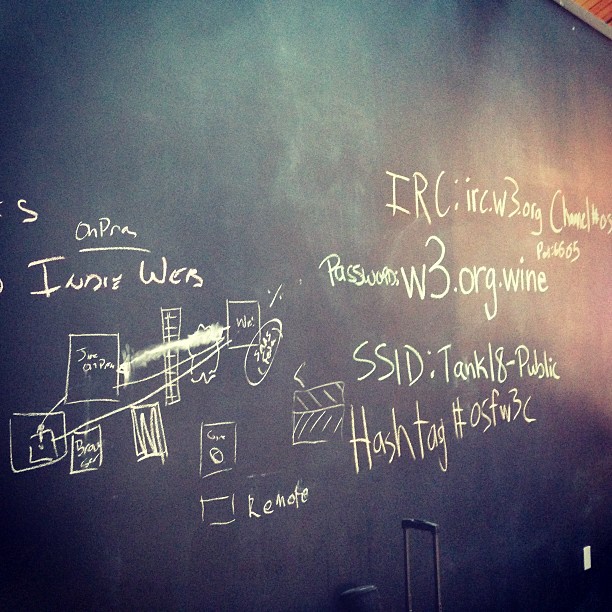 S
OnPrem
INDIE WEB
We
Remote
IRC: irc.w3.org Channel #os
Port: 6665
Password: w3.org.wine
SSID: Tank18-Public
Hashtag #osfw3c